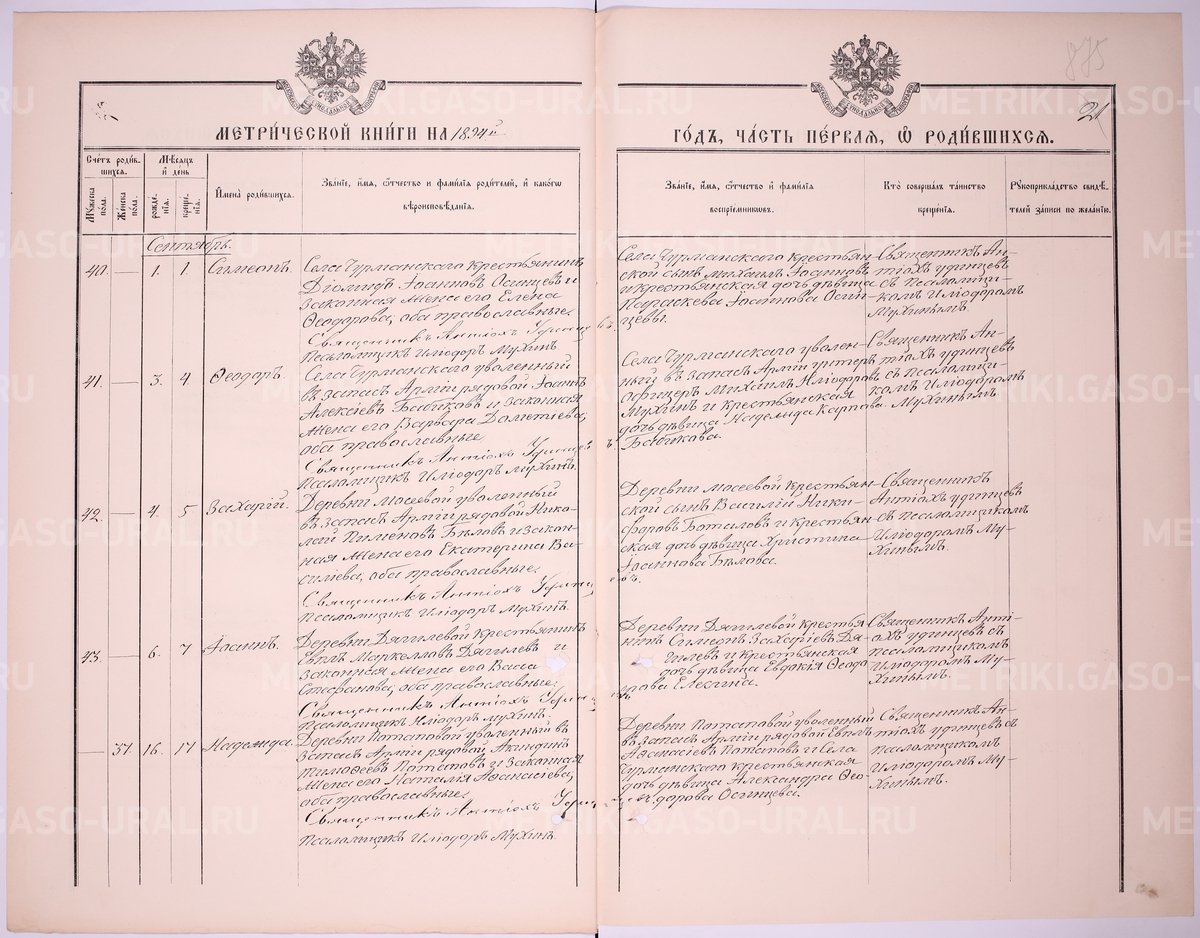 875
21
МЕТРИЧЕСКОЙ КНИГИ НА 1894й
ГОДЪ, ЧАСТЬ ПЕРВАЯ, Ѡ РОДИВШИХСЯ.
Счетъ родившихся.
Мужеска пола.
Женска пола.
Мѣсяцъ и день
рожденія.
крещенія.
Имена родившихся.
Званіе, имя, отчество и фамилія родителей, и какогѡ
вѣроисповѣданія.
Званіе, имя, отчество и фамилія
воспріемниковъ.
Кто совершалъ таинство
крещенія.
Рукоприкладство свидѣтелей записи по желанію.
Сентябрь.
40. — 1. 1 Симеонъ.
Села Чурманскаго крестьянинъ
Діомидъ Іоанновъ Осинцевъ и
законная жена его Елена
Ѳеодорова, оба православные.
Священникъ Антіохъ Удинцевъ.
Псаломщикъ Иліодоръ Мухинъ
Села Чурманскаго крестьян-
ской сынъ Михаилъ Іоанновъ
и крестьянская дочь дѣвица
Параскева Іоаннова Осин-
цевы.
Священникъ Ан-
тіохъ Удинцевъ
съ псаломщи-
комъ Иліодоромъ
Мухинымъ.
41. — 3. 4 Ѳеодоръ.
Села Чурманскаго уволенный
въ запасъ Арміи рядовой Іоаннъ
Алексіевъ Бабиковъ и законная
жена его Варвара Дометіева,
оба православные
Священникъ Антіохъ Удинцевъ
Псаломщикъ Иліодоръ Мухинъ.
Села Чурманскаго уволен-
ный въ запасъ Арміи унтеръ
офицеръ Михаилъ Иліодоровъ
Мухинъ и крестьянская
дочь дѣвица Надежда Карпова
Бабикова.
Священникъ Ан-
тіохъ Удинцевъ
съ псаломщи-
комъ Иліодоромъ
Мухинымъ.
42. — 4. 5 Захарій.
Деревни Мосеевой уволенный
въ запасъ Арміи рядовой Нико-
лай Пименовъ Бѣловъ и закон-
ная жена его Екатерина Ва-
силіева, оба православные.
Священникъ Антіохъ Удинцевъ.
Псаломщикъ Иліодоръ Мухинъ.
Деревни Мосеевой крестьян-
ской сынъ Василій Ники-
форовъ и крестьян-
ская дочь дѣвица Христина
Іоаннова Бѣлова.
Священникъ
Антіохъ Удинцевъ
съ псаломщикомъ
Иліодоромъ Му-
хинымъ.
43. — 6. 7 Іоаннъ.
Деревни Дягилевой крестьянинъ
Маркелловъ Дягилевъ и
законная жена его Васса
Стефанова, оба православные.
Священникъ Антіохъ Удинцевъ
Псаломщикъ Иліодоръ Мухинъ.
Деревни Дягилевой крестья-
нинъ Симеонъ Захаріевъ Дя-
гилевъ и крестьянская
дочь дѣвица Евдокія Ѳеодо-
рова
Священникъ Анті-
охъ Удинцевъ съ
псаломщикомъ
Иліодоромъ Му-
хинымъ.
— 37 16. 17 Надежда.
Деревни Потаповой уволенный въ
запасъ Арміи рядовой Акиндинъ
Тимоѳеевъ Потаповъ и законная
жена его Наталія Аѳанасіева,
оба православные.
Священникъ Антіохъ Удинцевъ.
Псаломщикъ Иліодоръ Мухинъ.
Деревни Потаповой уволенный
въ запасъ Арміи рядовой
Аѳанасіевъ Потаповъ и села
Чурманскаго крестьянская
дочь дѣвица Александра Ѳео-
дорова Осинцева.
Священникъ Ан-
тіохъ Удинцевъ съ
псаломщикомъ
Иліодоромъ Му-
хинымъ.
METRIKI.GASO-URAL.RU